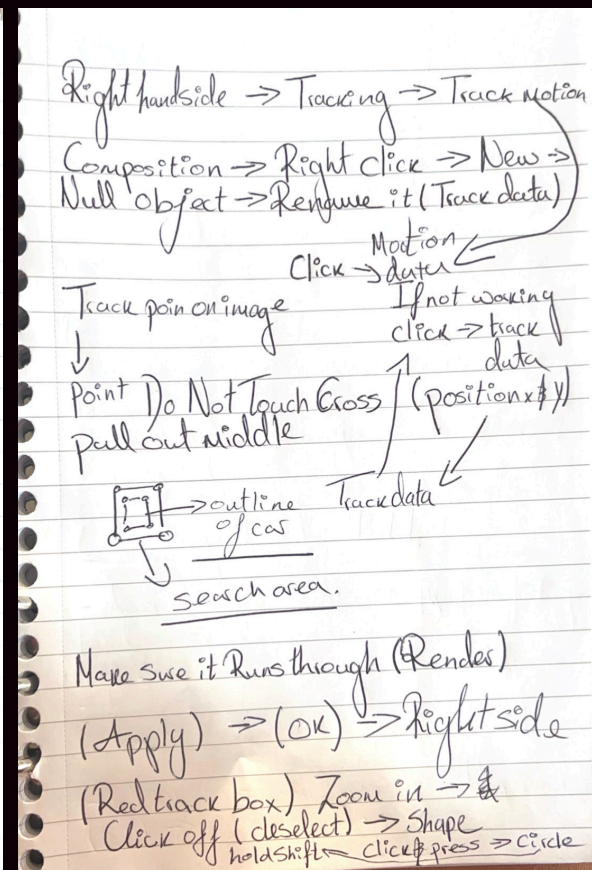 Right handside → Tracking → Track Motion
Composition → Right click → New →
Null object → Rename it (Track data)
Motion
Click → data
If not working
click → track
data
(position x & y)
Track data
Track poin on image
↓
Point Do Not Touch Cross
pull out middle
→ outline
of car
search area.
Make sure it Runs through (Render)
(Apply) → (OK) → Right side
(Red track box) Zoom in →
Click off (deselect) → Shape
hold shift ← click & press → Circle